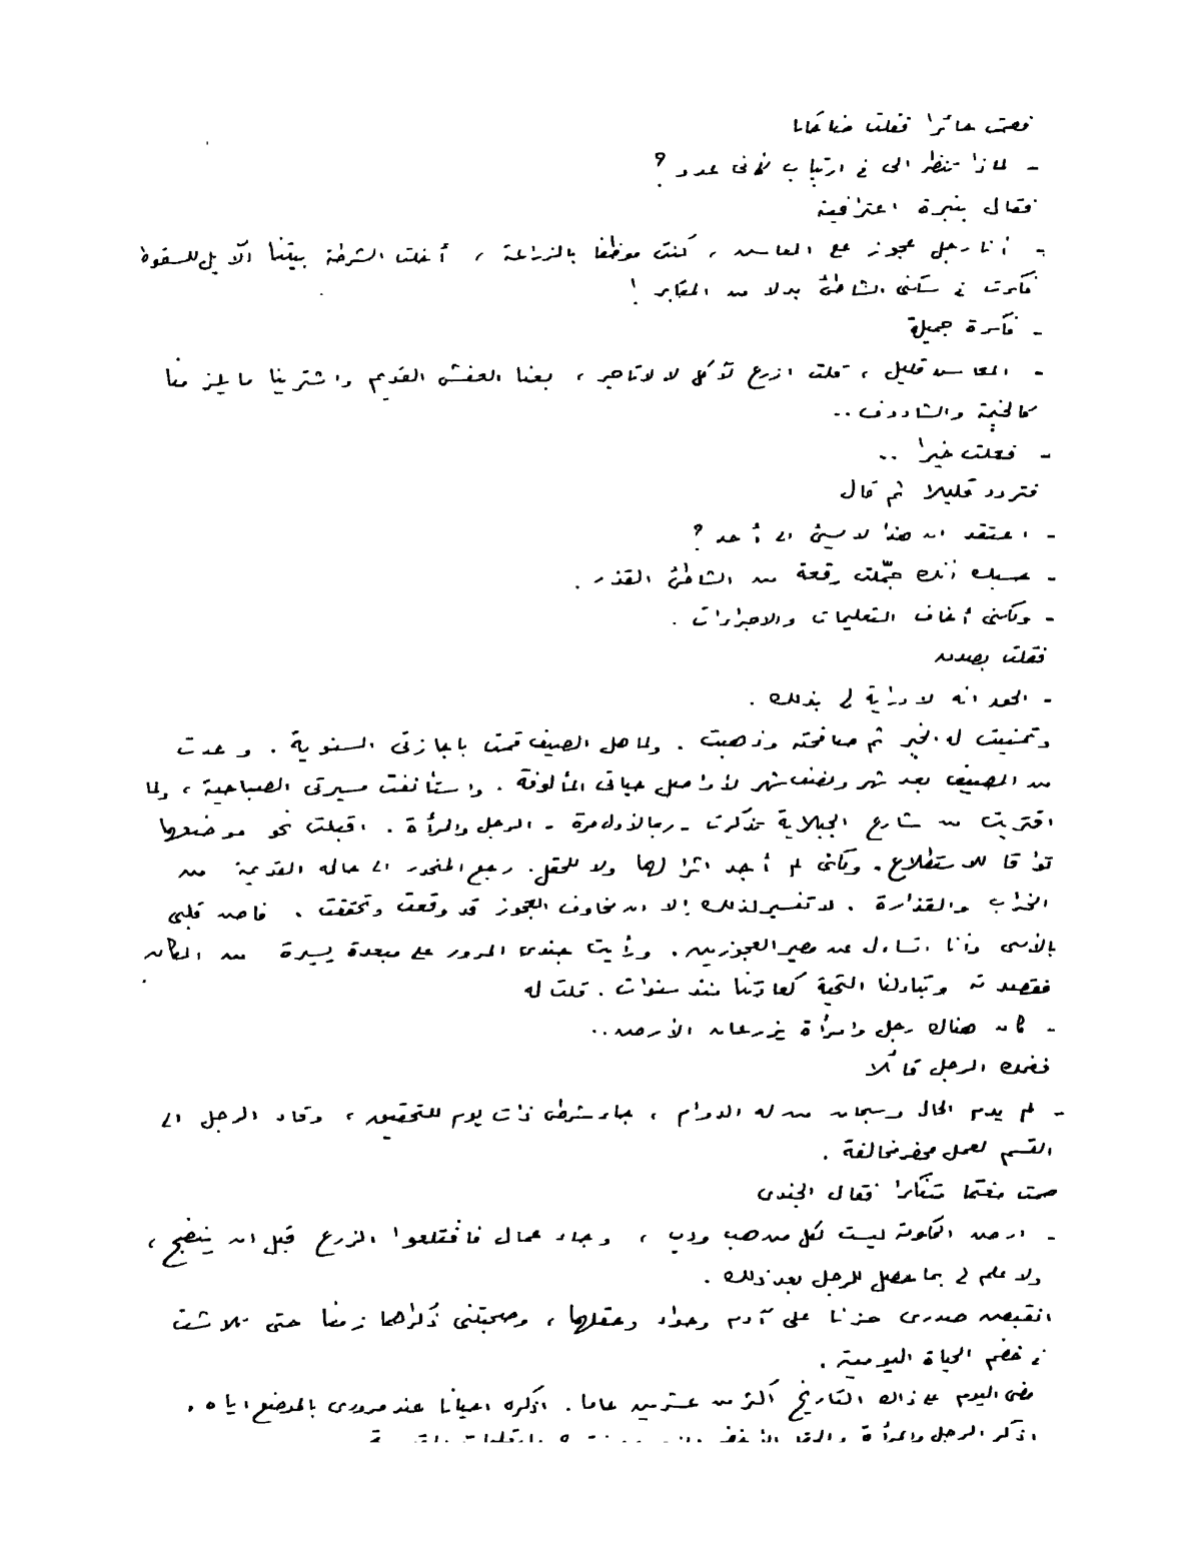 فصمت حائرا فقلت ضاحكا
- لماذا تنظر الى فى ارتياب كأنى عدو ؟
فقال بنبرة اعترافية
- أنا رجل عجوز على المعاش ، كنت موظفا بالزراعة ، أخلت الشرطة بيتنا الآيل للسقوط
فكرت فى سكنى الشاطئ بدلا من المقابر !
- فكرة جميلة
- المعاش قليل ، قلت ازرع لآكل لا لاتاجر ، بعنا العفش القديم واشترينا ما يلزمنا
كالخيمة والشادوف ..
- فعلت خيرا ..
فتردد قليلا ثم قال
- اعتقد ان هذا لا يسئ الى أحد ؟
- حسبك أنك جمّلت رقعة من الشاطئ القذر .
- ولكنى أخاف التعليمات والاجراءات .
فقلت بصدق
- الحق انه لا دراية لى بذلك .
وتمنيت له الخير ثم صافحته وذهبت . ولما حل الصيف قمت باجازتى السنوية . وعدت
من المصيف بعد شهر ونصف شهر لأواصل حياتى المألوفة . واستأنفت مسيرتى الصباحية ، ولما
اقتربت من شارع الجبلاية تذكرت - ربما لأول مرة - الرجل والمرأة . اقبلت نحو موضعها
تواقا للاستطلاع . ولكنى لم أجد اثرا لهما ولا للحقل . رجع المنحدر الى حاله القديمة من
الخراب والقذارة . لا تفسير لذلك إلا ان مخاوف العجوز قد وقعت وتحققت . فاض قلبى
بالأسى وأنا اتساءل عن مصير العجوزين . ورأيت جندى المرور على مبعدة يسيرة من المكان
فقصدته وتبادلنا التحية كعادتنا منذ سنوات . قلت له
- كان هناك رجل وامرأة يزرعان الأرض ..
فضحك الرجل قائلا
- لم يدم الحال وسبحان من له الدوام ، جاء شرطى ذات يوم للتحقيق ، وقاد الرجل الى
القسم لعمل محضر مخالفة .
صمت مغتما متفكرا فقال الجندى
- ارض الحكومة ليست لكل من هب ودب ، وجاء عمال فاقتلعوا الزرع قبل ان ينضج ،
ولا علم لى بما حصل للرجل بعد ذلك .
انقبض صدرى حزنا على آدم وحواء وحقلها ، وصحبتنى ذكراهما زمنا حتى تلاشت
فى خضم الحياة اليومية .
مضى اليوم على ذاك التاريخ أكثر من عشرين عاما . اذكره احيانا عند مرورى بالموضع اياه .
اذكر الرجل والمرأة